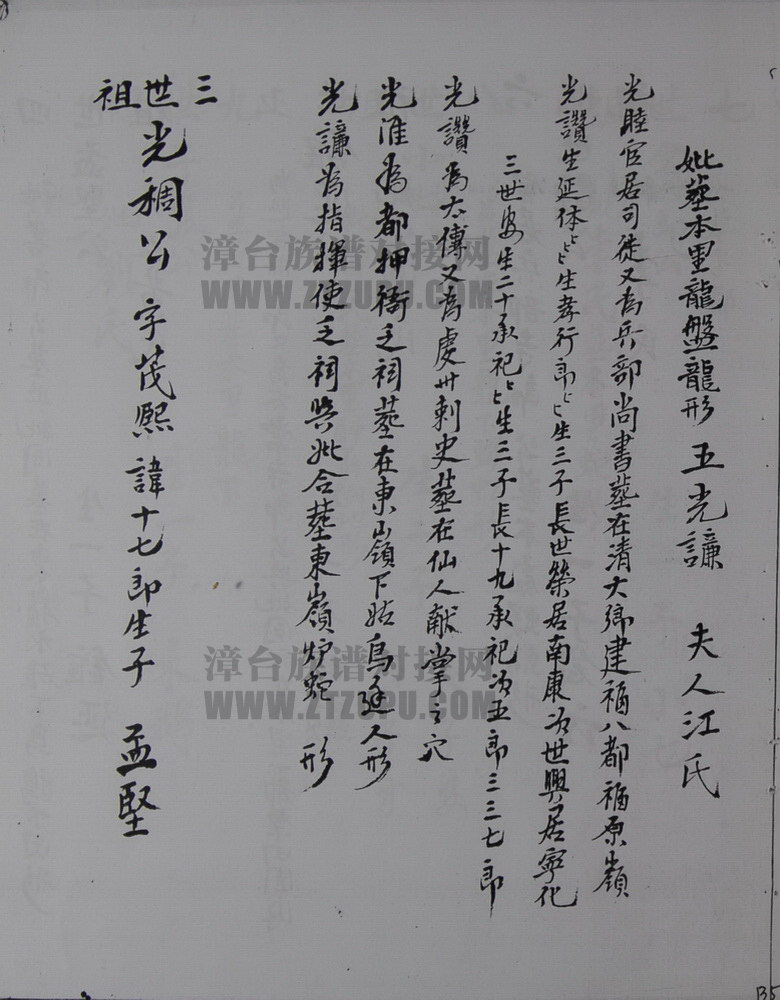 妣塟本里龍盤龍形 五光謙 夫人江氏
光睦官居司徒又為兵部尚書塟在清大鄉建福八都福原嶺
光讚生延休〻〻生孝行郎〻生三子長世榮居南康次世興居寧化
三世安生二十承祀〻生三子長十九承祀次五郎三三七郎
光讚為太傅又為虔州刺史塟在仙人献掌之穴
光淮為都押衙乏祠塟在東山嶺下姑鳥 人形
光謙為指揮使乏祠與妣合塟東嶺 蛇 形
三世祖 光稠公 字茂熙 諱十七郎生子 孟堅
漳台族谱对接网
WWW.ZTZUPU.COM
漳台族谱对接网
WWW.ZTZUPU.COM
B5